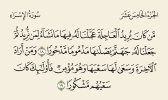 الجزء الخامس عشر سورة الإسراء
مَّن كَانَ يُرِيدُ ٱلْعَاجِلَةَ عَجَّلْنَا لَهُۥ فِيهَا مَا نَشَآءُ لِمَن نُّرِيدُ ثُمَّ
جَعَلْنَا لَهُۥ جَهَنَّمَ يَصْلَىٰهَا مَذْمُومًا مَّدْحُورًا ١٨ وَمَنْ أَرَادَ
ٱلْأَخِرَةَ وَسَعَىٰ لَهَا سَعْيَهَا وَهُوَ مُؤْمِنٌ فَأُو۟لَٰٓئِكَ كَانَ
سَعْيُهُم مَّشْكُورًا ١٩